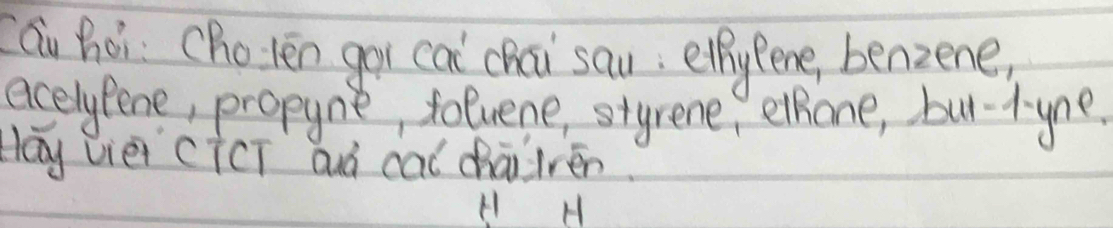 Câu hỏi: Cho tên gọi các chất sau: ethylene, benzene,
acetylene, propyne, toluene, styrene, ethane, but-1-yne.
Hãy viết CTCT của các chất trên.
H H